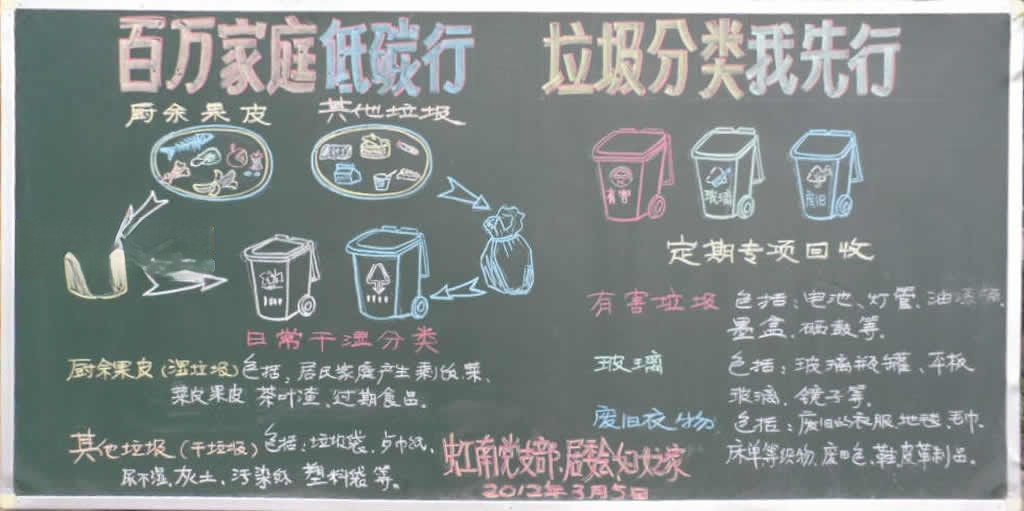 百万家庭低碳行
垃圾分类我先行
厨余果皮
其他垃圾
日常干湿分类
厨余果皮(湿垃圾)包括:居民家庭产生剩饭菜、
菜皮果皮 茶叶渣、过期食品。
其他垃圾(干垃圾)包括:垃圾袋、卫巾纸、
尿不湿、灰土、污染纸 塑料袋等。
有害
玻璃
废旧
定期专项回收
有害垃圾 包括:电池、灯管、油漆桶、
墨盒、硒鼓等。
玻璃 包括:玻璃瓶罐、平板
玻璃、镜子等。
废旧衣物 包括:废旧的衣服、地毯、毛巾、
床单等织物、废旧包、鞋、皮革制品。
虹南党支部·居委会妇女之家
2012年3月5日